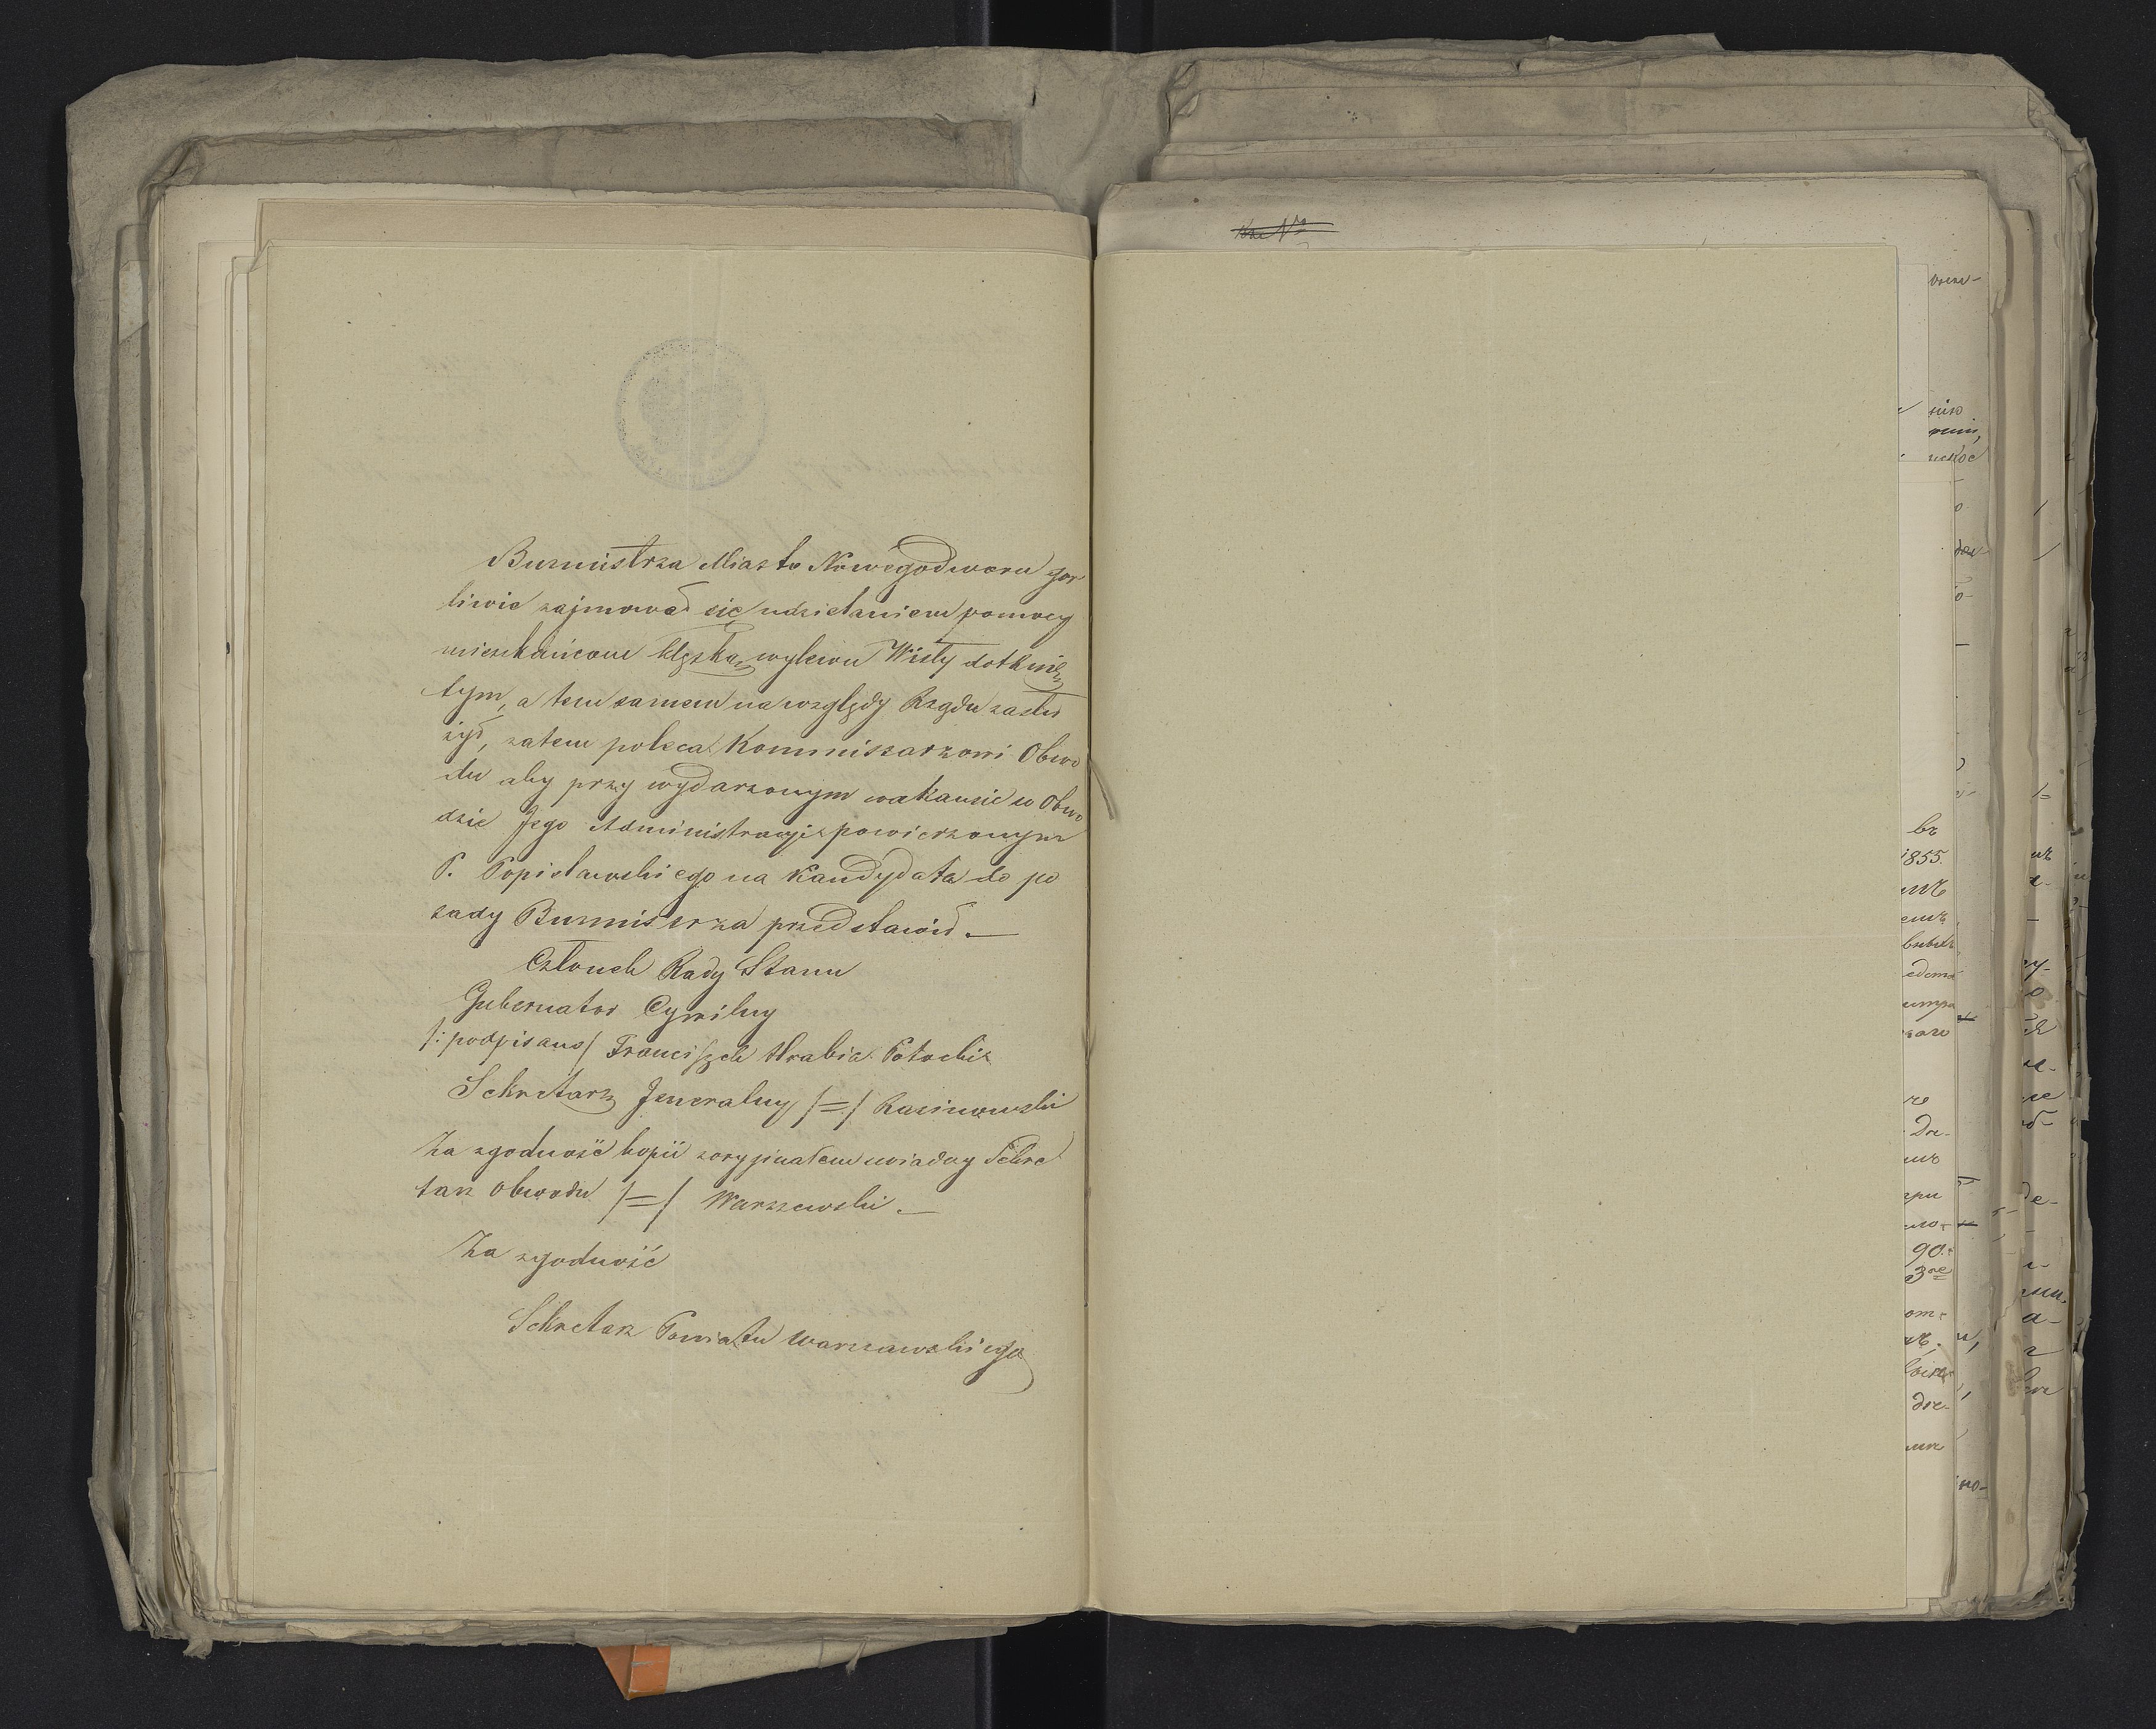 Burmistrza Miasta Nowegodworu gor
liwie zajmował się udzielaniem pomocy
mieszkańcom klęską wylewu Wisły dotknię
tym, a tem samem na względy Rządu zasłu
żył, zatem poleca Kommissarzowi Obwo
du aby przy wydarzonym wakansie w Obwo
dzie Jego Administracyi powierzonym
P. Popisławskiego na Kandydata do po
sady Burmistrza przedstawił. —
Członek Rady Stanu
Gubernator Cywilny
/: podpisano / Franciszek Hrabia Potocki
Sekretarz Jeneralny /=/ Rasinowski
Za zgodność kopii z oryginałem świadczy Sekre
tarz Obwodu /=/ Warszewski. —
Za zgodność
Sekretarz Powiatu Warszawskiego
1855.
90.